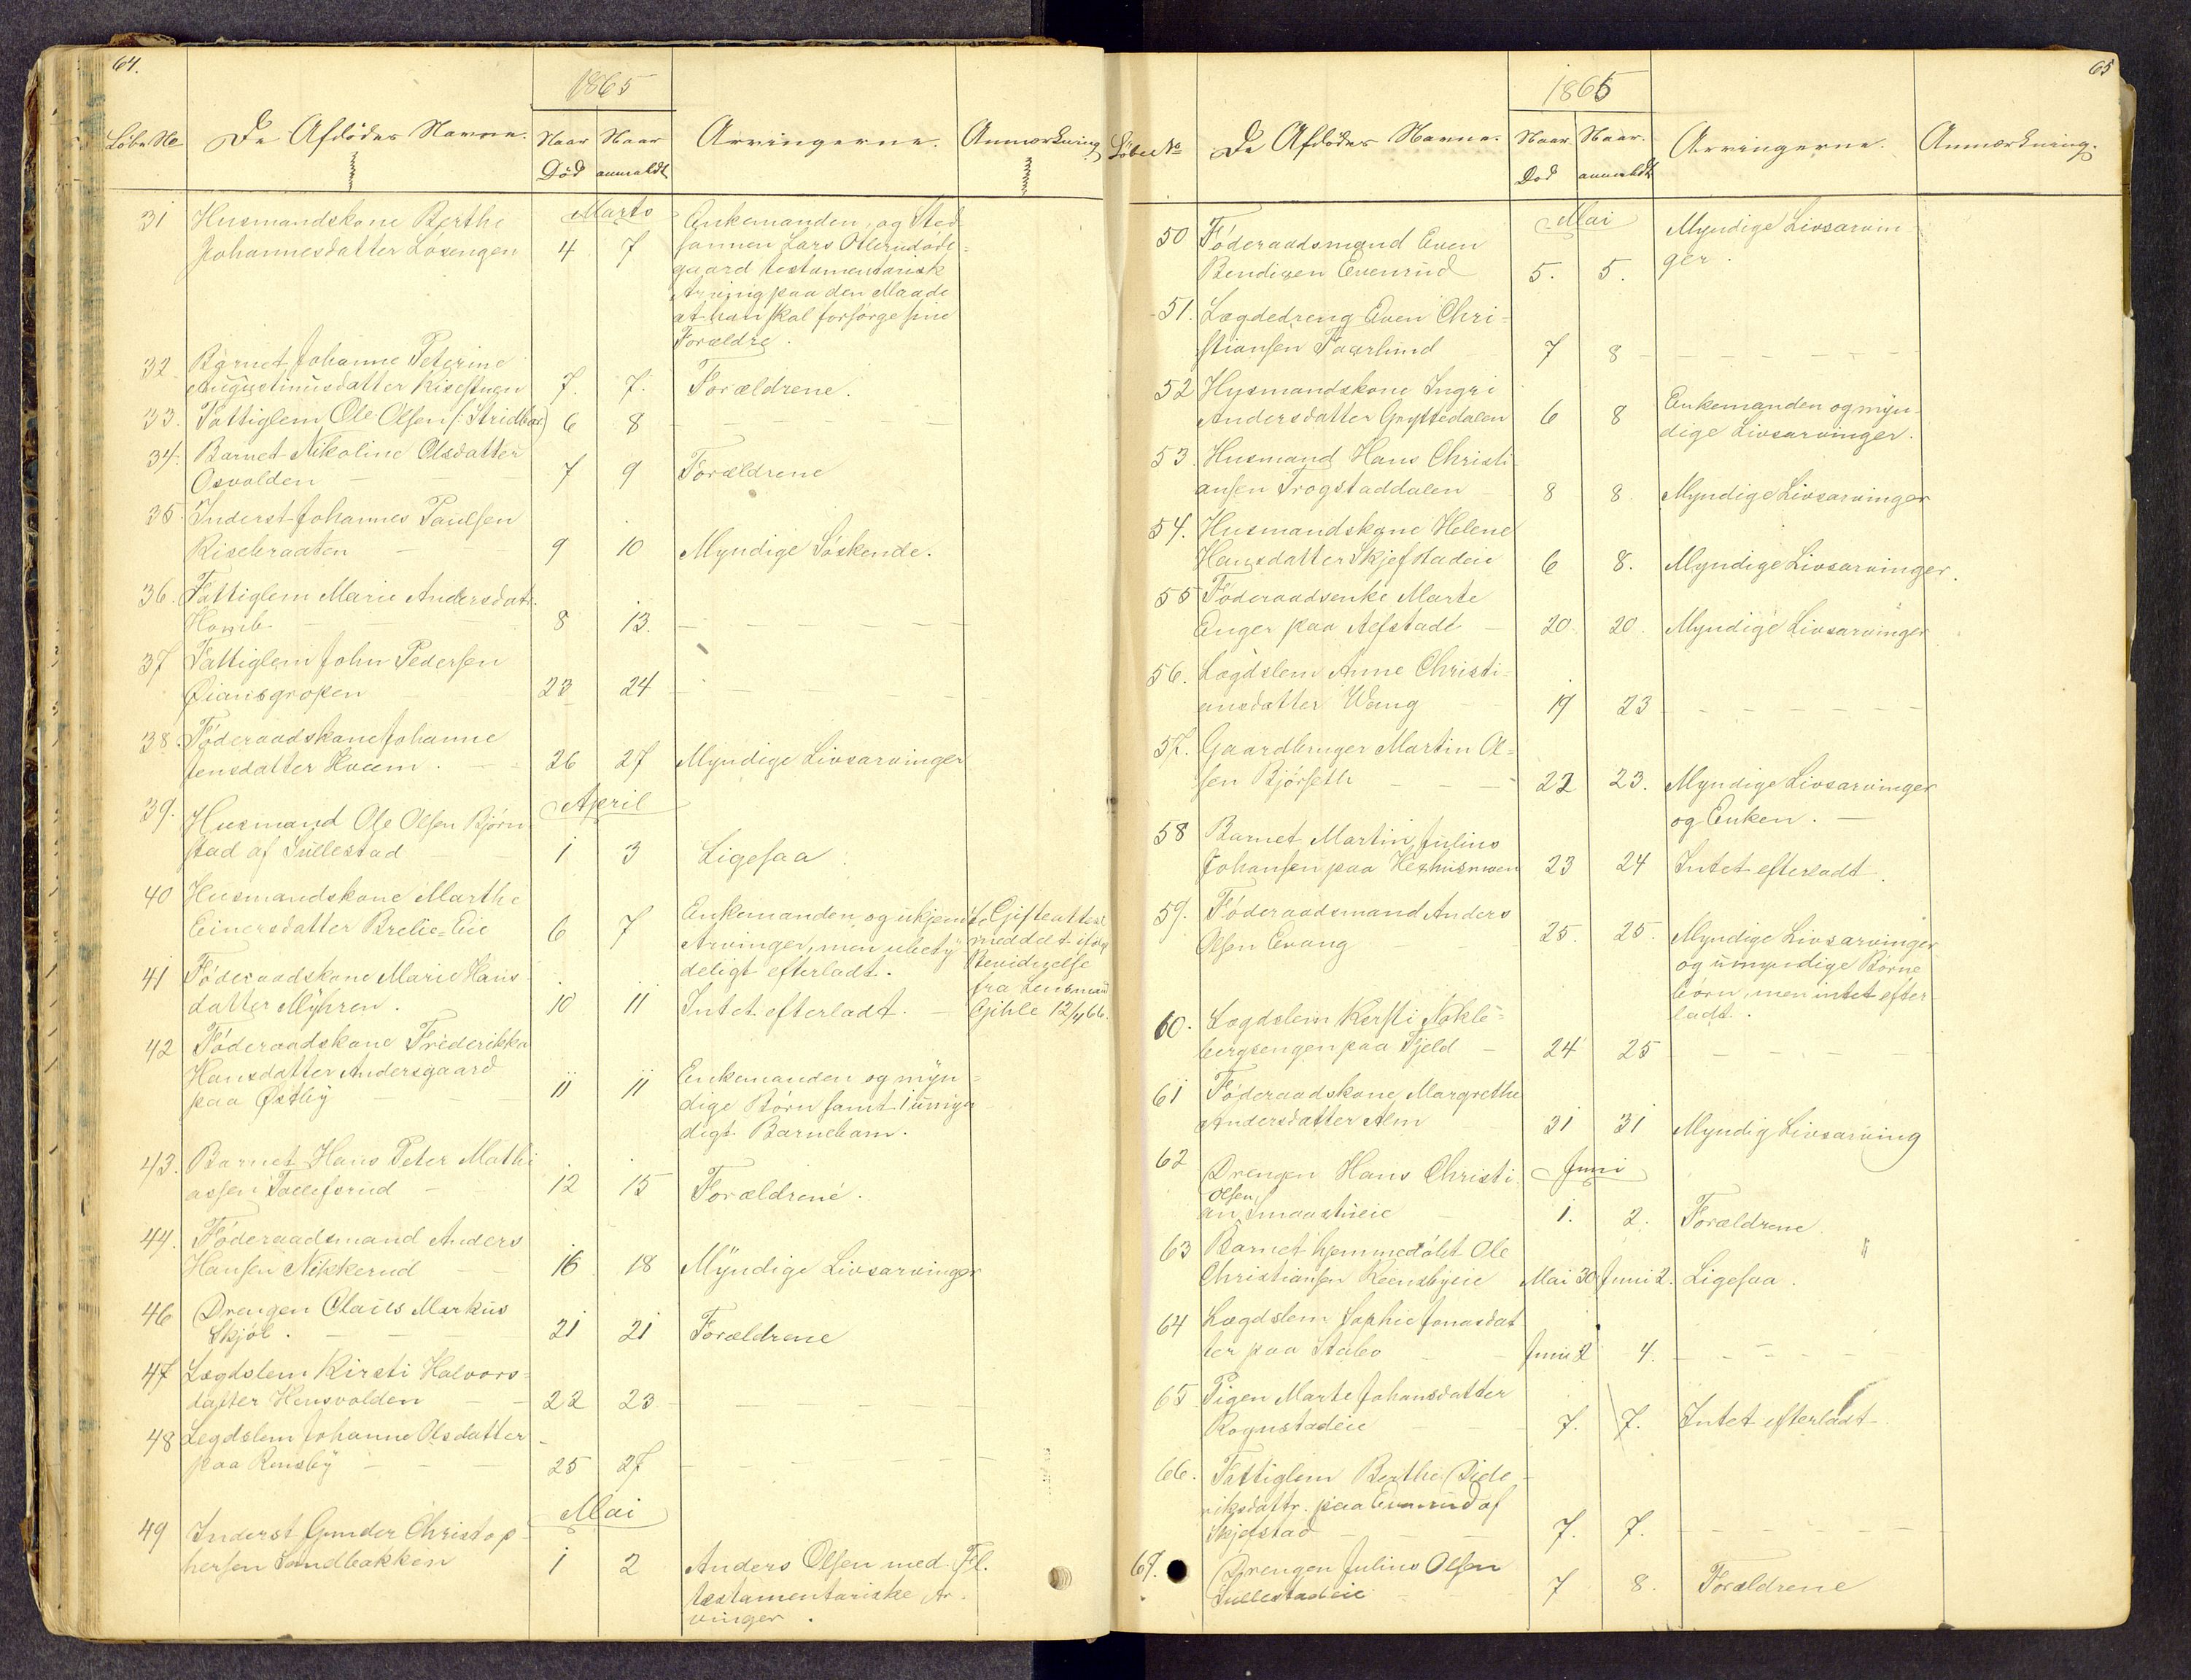 64.
1865
Løbe No
De Afdødes Navne.
Naar Død
Naar anmeldt
Arvingerne.
Anmærkning
31 Husmandskone Berthe
Johannesdatter Løsengen
Marts
4 7
Enkemanden, og Sted
sønnen Lars
gaard testamentarisk
Arving paa den Maade
at han skal forsørge sine
Forældre.
32 Barnet Johanne Peterine
Augustinusdatter Risestuen 7. 7. Forældrene.
33. Fattiglem Ole Olsen /: Stridbar) 6 8 — — — — —
34. Barnet Nikoline Olsdatter
Osvolden — 7 9 Forældrene
35. Inderst Johannes Paulsen
Risebraaten — 9 10 Myndige Søskende.
36. Fattiglem Marie Andersdatr.
Homb — 8 13. — — — — —
37 Fattiglem John Pedersen
23 24 — — — — —
38. Føderaadskone Johanne
Jensdatter Hveem. — 26 27 Myndige Livsarvinger
39. April
Husmand Ole Olsen Bjørn
stad af Sullestad 1 3 Ligesaa.
40 Husmandskone Marthe
Einersdatter Brelie-Eie 6 7
Enkemanden og ukjendte
Arvinger, men ubety-
deligt efterladt.
Gifteattest
meddelt ifølge
Bevidnelse
fra Lensmand
Gihle 12/4 66.
41 Føderaadskone Marie Hans
datter Myhren. 10 11 Intet efterladt. —
42 Føderaadskone Frederikka
Hansdatter Andersgaard
paa Østby — 11 11
Enkemanden og myn-
dige Børn samt 1 umyn
digt Barnebarn.
43. Barnet Hans Peter Mathi
assen Tollefsrud — 12 15 Forældrene.
44. Føderaadsmand Anders
Hansen Nikkerud — 16 18 Myndige Livsarvinger
46 Drengen Olaus Markus
Skjøl. — — — 21 21 Forældrene
47 Lægdslem Kirsti Halvors-
datter Hensvolden — 22 23 — — — — —
48 Legdslem Johanne Olsdatter
paa Rensby — — — 25 27 — — — — —
Mai
49 Inderst Gunder Christop-
hersen Sandbakken 1 2
Anders Olsen med Fl.
testamentariske Ar-
vinger.
65
1865
Løbe No
De Afdødes Navne.
Naar Død
Naar anmeldt
Arvingerne.
Anmærkning.
Mai
50 Føderaadsmand Even
Bendixen Evenrud 5. 5.
Myndige Livsarvin
ger.
51. Lægdedreng Even Chri-
stiansen Faarlund 7 8 — — — — —
52 Husmandskone Ingri
Andersdatter Gryttedalen 6 8
Enkemanden og myn-
dige Livsarvinger.
53. Husmand Hans Christi
ansen Trogstaddalen 8 8. Myndige Livsarvinger
54. Husmandskone Helene
Hansdatter Skjefstadeie 6 8. Myndige Livsarvinger.
55 Føderaadsenke Marte
Enger paa Alfstadt — 20 20. Myndige Livsarvinger
56. Lægdslem Anne Christi-
ansdatter Wang — 19 23 — — — — —
57. Gaardbruger Martin Ol-
sen Bjørseth — — — 22 23.
Myndige Livsarvinger
og Enken. —
58 Barnet Martin Julius
Johansen paa 23 24 Intet efterladt.
59. Føderaadsmand Anders
Olsen Evang — 25. 25.
Myndige Livsarvinger
og umyndige Børne
børn, men intet efter
ladt.
60. Lægdslem Kersti Nøkle-
bergsengen paa Fjeld — 24 25 — — — — —
61 Føderaadskone Margrethe
Andersdatter Alm 31 31 Myndig Livsarving
Juni
62 Drengen Hans Christi
Olsen
an Smaastueie 1. 2. Forældrene
63 Barnet hjemmedøbt Ole
Christiansen Reensbyeie Mai 30 Juni 2. Ligesaa.
64 Lægdslem Sophie Jonasdat
ter paa Stabo — Juni 2 4. — — — — —
65 Pigen Marte Johansdatter
Rognstadeie — 7. 7. Intet efterladt
66. Fattiglem Berthe Dide-
riksdattr. paa Evenrud af
Skjefstad — — 7. 7. — — — — —
67. Drengen Julius Olsen
Sullestadeie 7 8. Forældrene